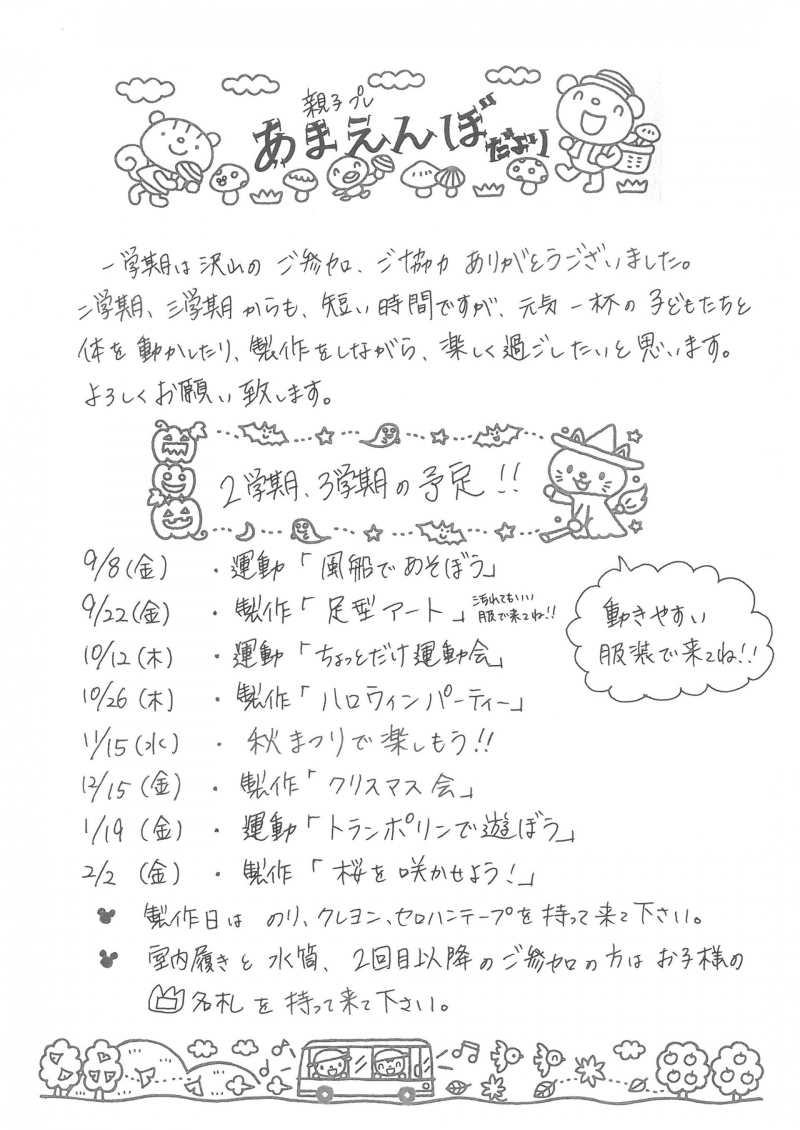 親子プレ
あまえんぼだより
一学期は沢山のご参加、ご協力ありがとうございました。
二学期、三学期からも、短い時間ですが、元気一杯の子どもたちと
体を動かしたり、製作をしながら、楽しく過ごしたいと思います。
よろしくお願い致します。
2学期、3学期の予定!!
9/8(金) ・運動「風船であそぼう」
9/22(金) ・製作「足型アート」汚れてもいい服で来てね!!
10/12(木) ・運動「ちょっとだけ運動会」
10/26(木) ・製作「ハロウィンパーティー」
11/15(水) ・秋まつりで楽しもう!!
12/15(金) ・製作「クリスマス会」
1/19(金) ・運動「トランポリンで遊ぼう」
2/2(金) ・製作「桜を咲かせよう!」
動きやすい
服装で来てね!!
製作日はのり、クレヨン、セロハンテープを持って来て下さい。
室内履きと水筒、2回目以降のご参加の方はお子様の
名札を持って来て下さい。